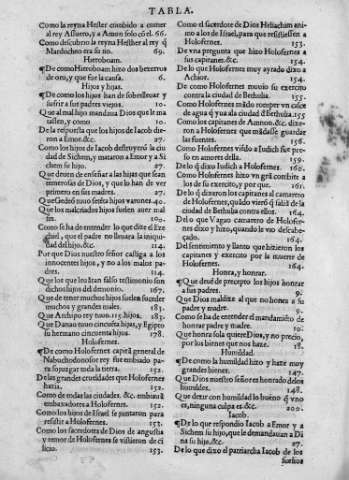 TABLA.
Como la reyna Hester combido a comer
al rey Assuero, y a Amon solo cō el. 66.
Como descubrio la reyna Hester al rey q̄
Mardocheo era su tio. 69.
Hieroboam.
¶De como Hieroboam hizo dos bezerros
de oro, y que fue la causa. 6.
Hijos y hijas.
¶De como los hijos han de sobrelleuar y
sufrir a sus padres viejos. 10.
Que al mal hijo mandaua Dios que le ma
tassen, y como 10.
De la respuesta que los hijos de Iacob die-
ron a Emor. &c. 27.
Como los hijos de Iacob destruyerō la ciu
dad de Sichem, y mataron a Emor y a Si
chem su hijo. 27.
Que deuen de enseñar a las hijas que sean
temerosas de Dios, y que las han de ver
primero en sus madres. 27.
Que Gedeō tuuo setēta hijos varones 40.
Que los malcriados hijos suelen auer mal
fin. 100.
Como se ha de entender lo que dize el Eze
chiel, que el padre no lleuara la iniqui-
dad del hijo. &c. 114.
Por que Dios nuestro señor castiga a los
innocentes hijos, y no a los malos pa-
dres. 114.
Que los que leuātan falso testimonio son
dichos hijos del demonio. 167.
Que de tener muchos hijos suelen suceder
muchos y grandes males. 183.
Que Anchipo rey tuuo. 115 hijos. 183.
Que Danao tuuo cincuēta hijas, y Egisto
su hermano cincuenta hijos. 178.
Holofernes.
¶De como Holofernes capitā general de
Nabuchodonosor rey fue embiado pa-
ra sojuzgar toda la tierra. 152.
De las grandes crueldades que Holofernes
hazia. 152.
Como de todas las ciudades. &c. embiarō
embaxadores a Holofernes. 152.
Como los hijos de Israel se juntaron para
resistir a Holofernes. 153.
Como los sacerdotes de Dios de angustia
y temor de Holofernes se vistieron de ci
licio. 153.
Como el sacerdote de Dios Heliachim ani
mo a los de Israel, para que resistiessen a
Holofernes. 153.
De vna pregunta que hizo Holofernes a
sus capitanes. &c. 154.
De lo que Holofernes muy ayrado dixo a
Achior. 154.
De como Holofernes mouio su exercito
contra la ciudad de Bethulia. 155.
Como Holofernes mādo romper vn caño
de agua q̄ yua ala ciudad d̄ Bethulia 155.
Como los capitanes de Ammon. &c. dixe-
ron a Holofernes que mādasse guardar
las fuentes. 156.
Como Holofernes viēdo a Iudich fue pre
so en amores della. 159.
De lo q̄ dixo Iudich a Holofernes. 160.
Como Holofernes hizo vn grā combite a
los de su exercito, y por que. 161.
De lo q̄ dixeron los capitanes al camarero
de Holofernes, quādo vierō q̄ salia d̄ la
ciudad de Bethulia contra ellos. 164.
De lo que Vagao camarero de Holofer-
nes dixo y hizo, quando le vio descabe-
çado. 164.
Del sentimiento y llanto que hizieron los
capitanes y exercito por la muerte de
Holofernes. 164.
Honra, y honrar.
¶Que deue de precepto los hijos honrar
a sus padres. 9.
Que Dios maldize al que no honra a Su
padre y madre. 9.
Como se ha de entender el mandamiēto de
honrar padre y madre. 10.
Que honra sola quiere Dios, y no precio,
por los bienes que nos haze. 18.
Humildad.
¶De como la humildad hizo y haze muy
grandes bienes. 147.
Que Dios nuestro señor es honrado de los
humildes. 148.
Que dezir con humildad lo bueno q̄ vno
es, ninguna culpa es. &c. 202.
Iacob.
¶De lo que respondio Iacob a Emor y a
Sichem su hijo, que le demandauan a Di
na su hija. &c. 27.
De lo que dixo el patriarcha Iacob de los